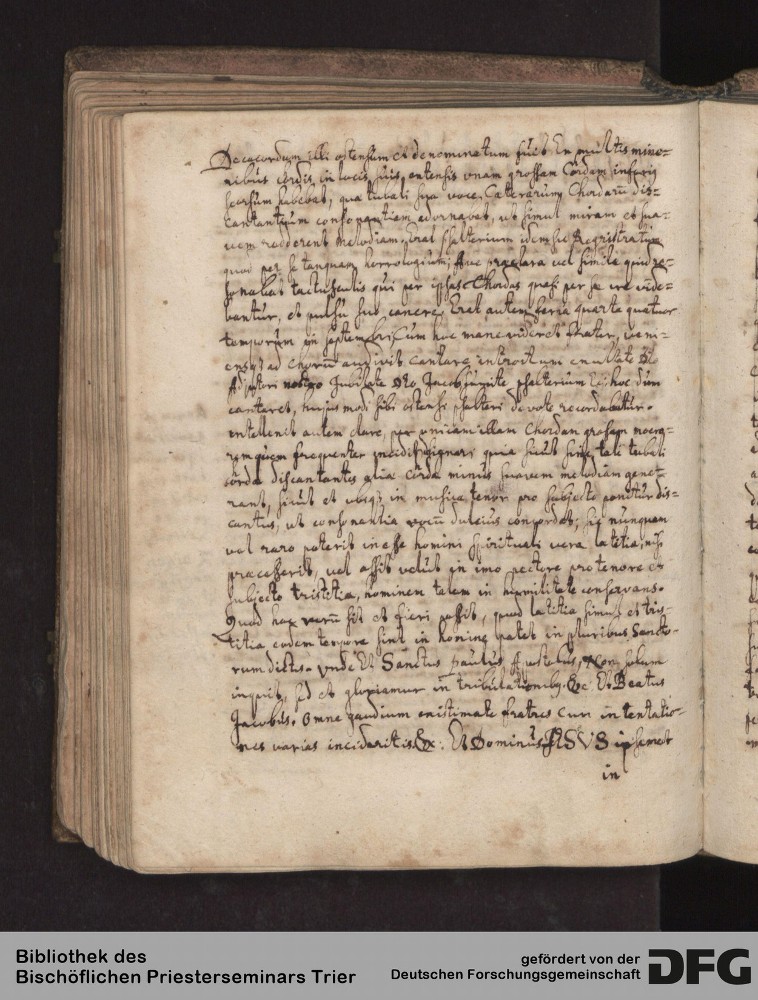 Decacordum illi ostensum et denominatum fuit En multis mino=
nibus cordis in locis suis extensis unam grossam Cordam inferius
seorsum habebat, qua tubali sua voce, Caeterarum Chordarū dis=
cantantium consonantiam adornabat, ut simul miram et sua=
vem redderent melodiam. Erat psalterium idem sic Registratum
quod per se tanquam horrologium, Ave praeclara vel simile quid re=
sonabat qui per ipsas Chordas quasi per se ire vide=
bantur, et pulsu suo canere. Erat autem feria quarta quatuor
temporum in septembri, Cum hac mane videret frater, veni=
ensq3 ad Chorum audivit cantare introitum exultate Deo
Adjutori nostro Jubilate Deo Jacob sumite psalterium hoc dum
cantaret, hujusmodi sibi ostensi psalteri devote recordabatur.
intellexit autem clare, per unicam illam Chordam grossam
frequenter significari quia sicut sine tali tubali
corda discantantes aliae cordae minus suavem melodiam gene=
rant, sicut et ubiq3 in musica tenor pro subjecto ponitur dis=
cantus, ut consonantia vocū dulcius concordet; sic nunquam
vel raro poterit inesse homini spirituali vera laetitia, nisi
praecesserit, vel assit velut in imo pectore pro tenore et
subjecto tristitia, hominem talem in humilitate conservans.
Quod hoc verū sit et fieri possit, quod laetitia simul et tris=
titia eodem tempore sint in homine patet in pluribus Sancto=
rum dictis. Unde Et Sanctus paulus Apostolus, Non solum
inquit, sed et gloriamur in tribulationib9 &c Et Beatus
Jacobus. Omne gaudium existimate fratres cum in tentatio=
nes varias incideritis &c: Et Dominus JESUS ipsemet
in
Bibliothek des
Bischöflichen Priesterseminars Trier
gefördert von der
Deutschen Forschungsgemeinschaft
DFG